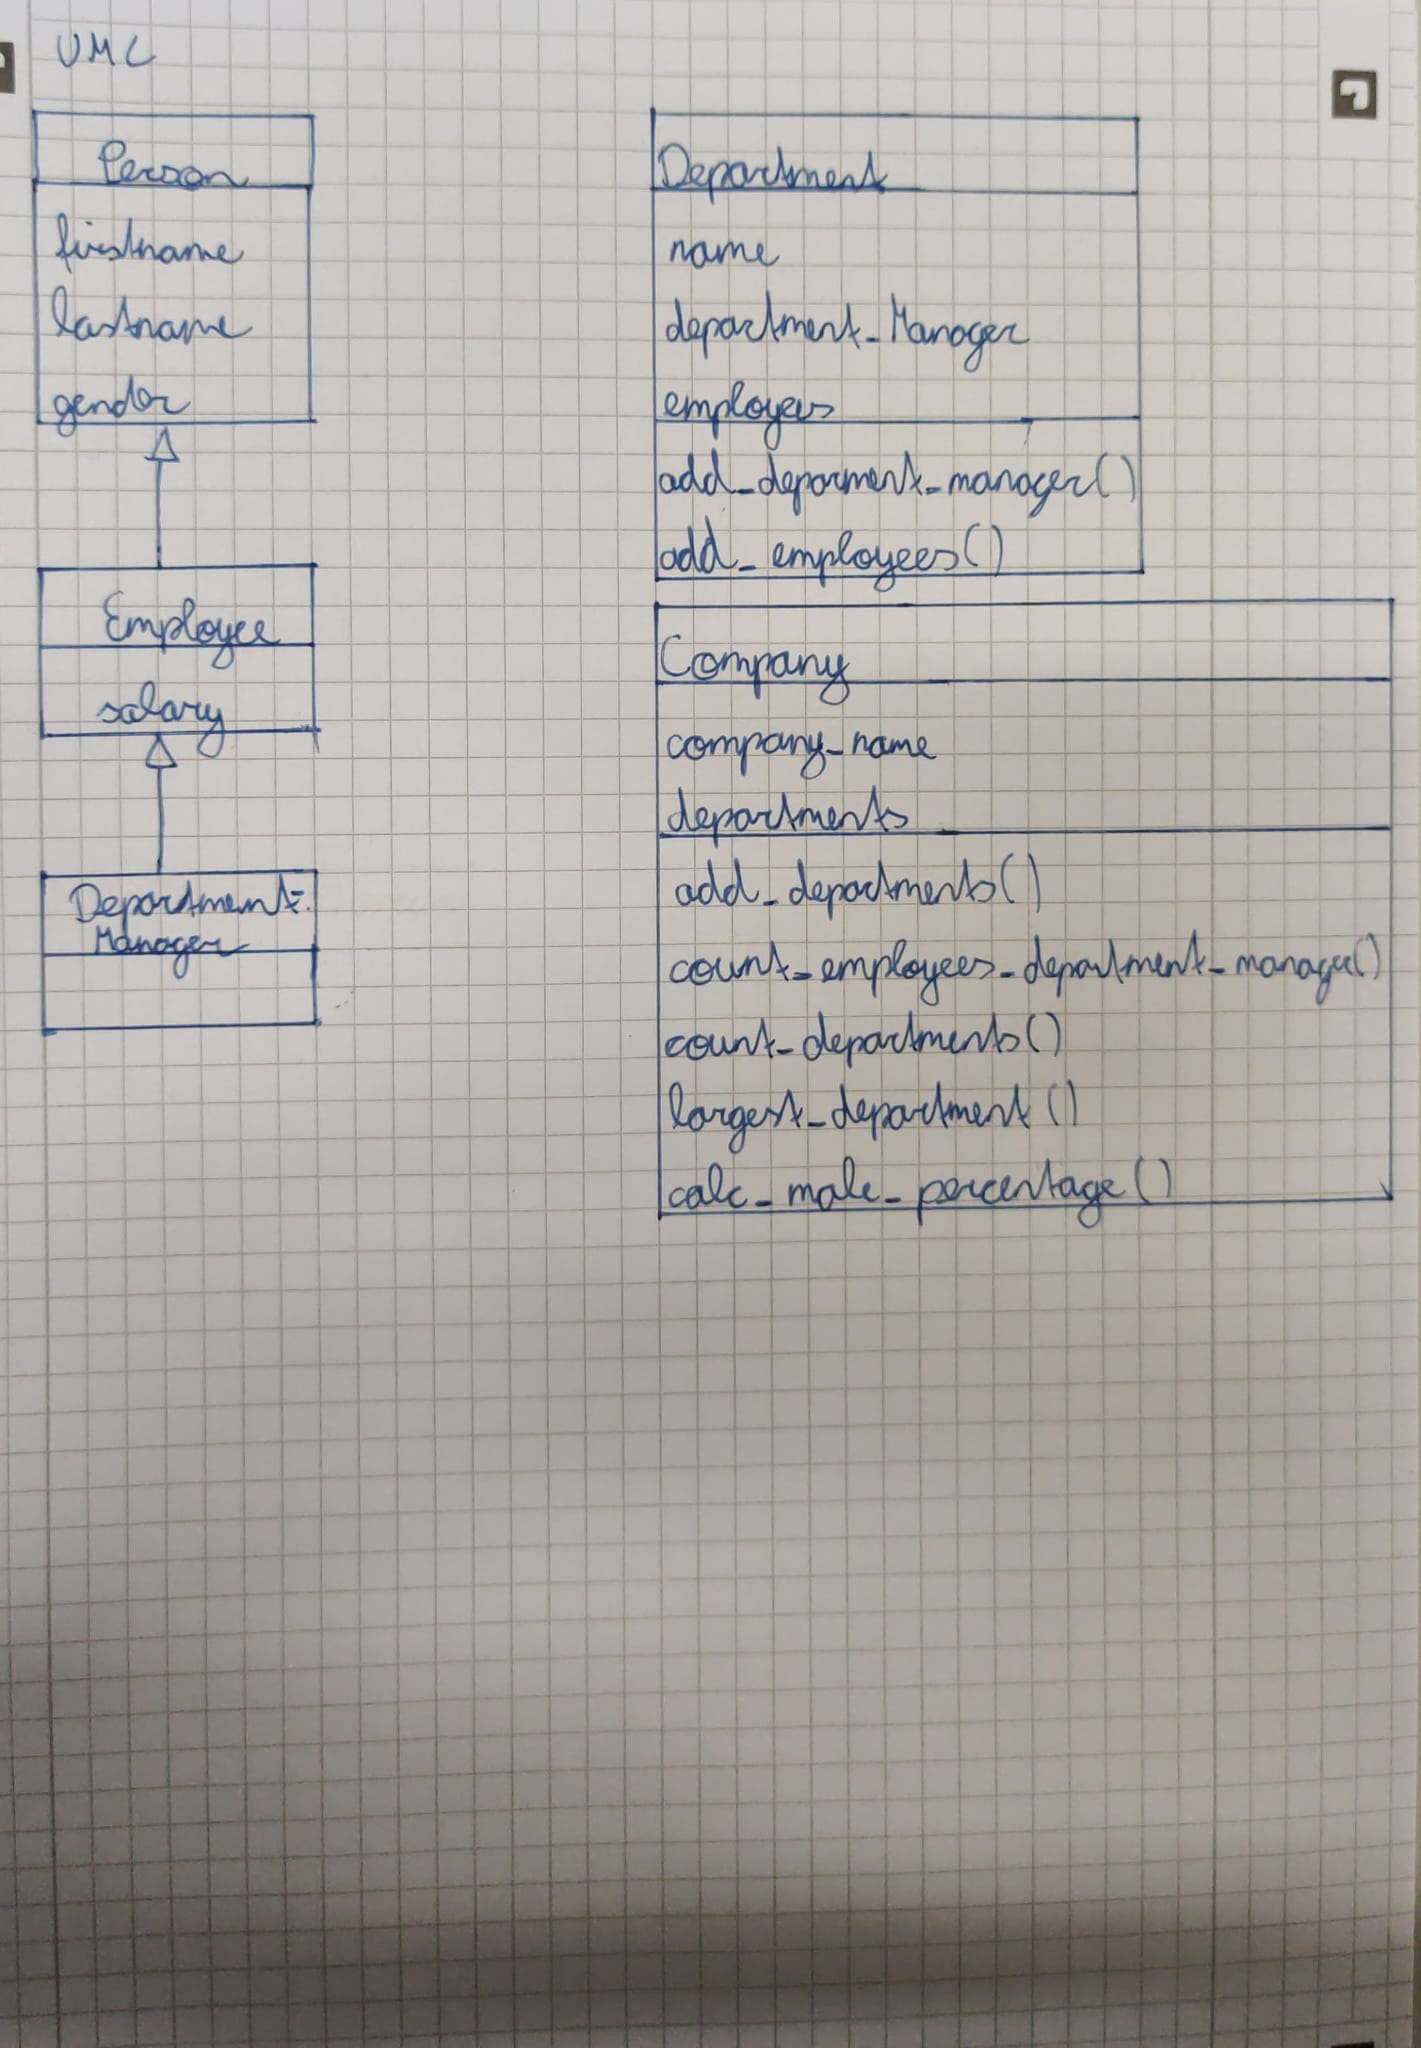 UML
Person
firstname
lastname
gender
Employee
salary
Department-
Manager
Department
name
department_Manager
employees
add_deparment_manager()
add_employees()
Company
company_name
departments
add_departments()
count_employees_department_manager()
count_departments()
largest_department()
calc_male_percentage()